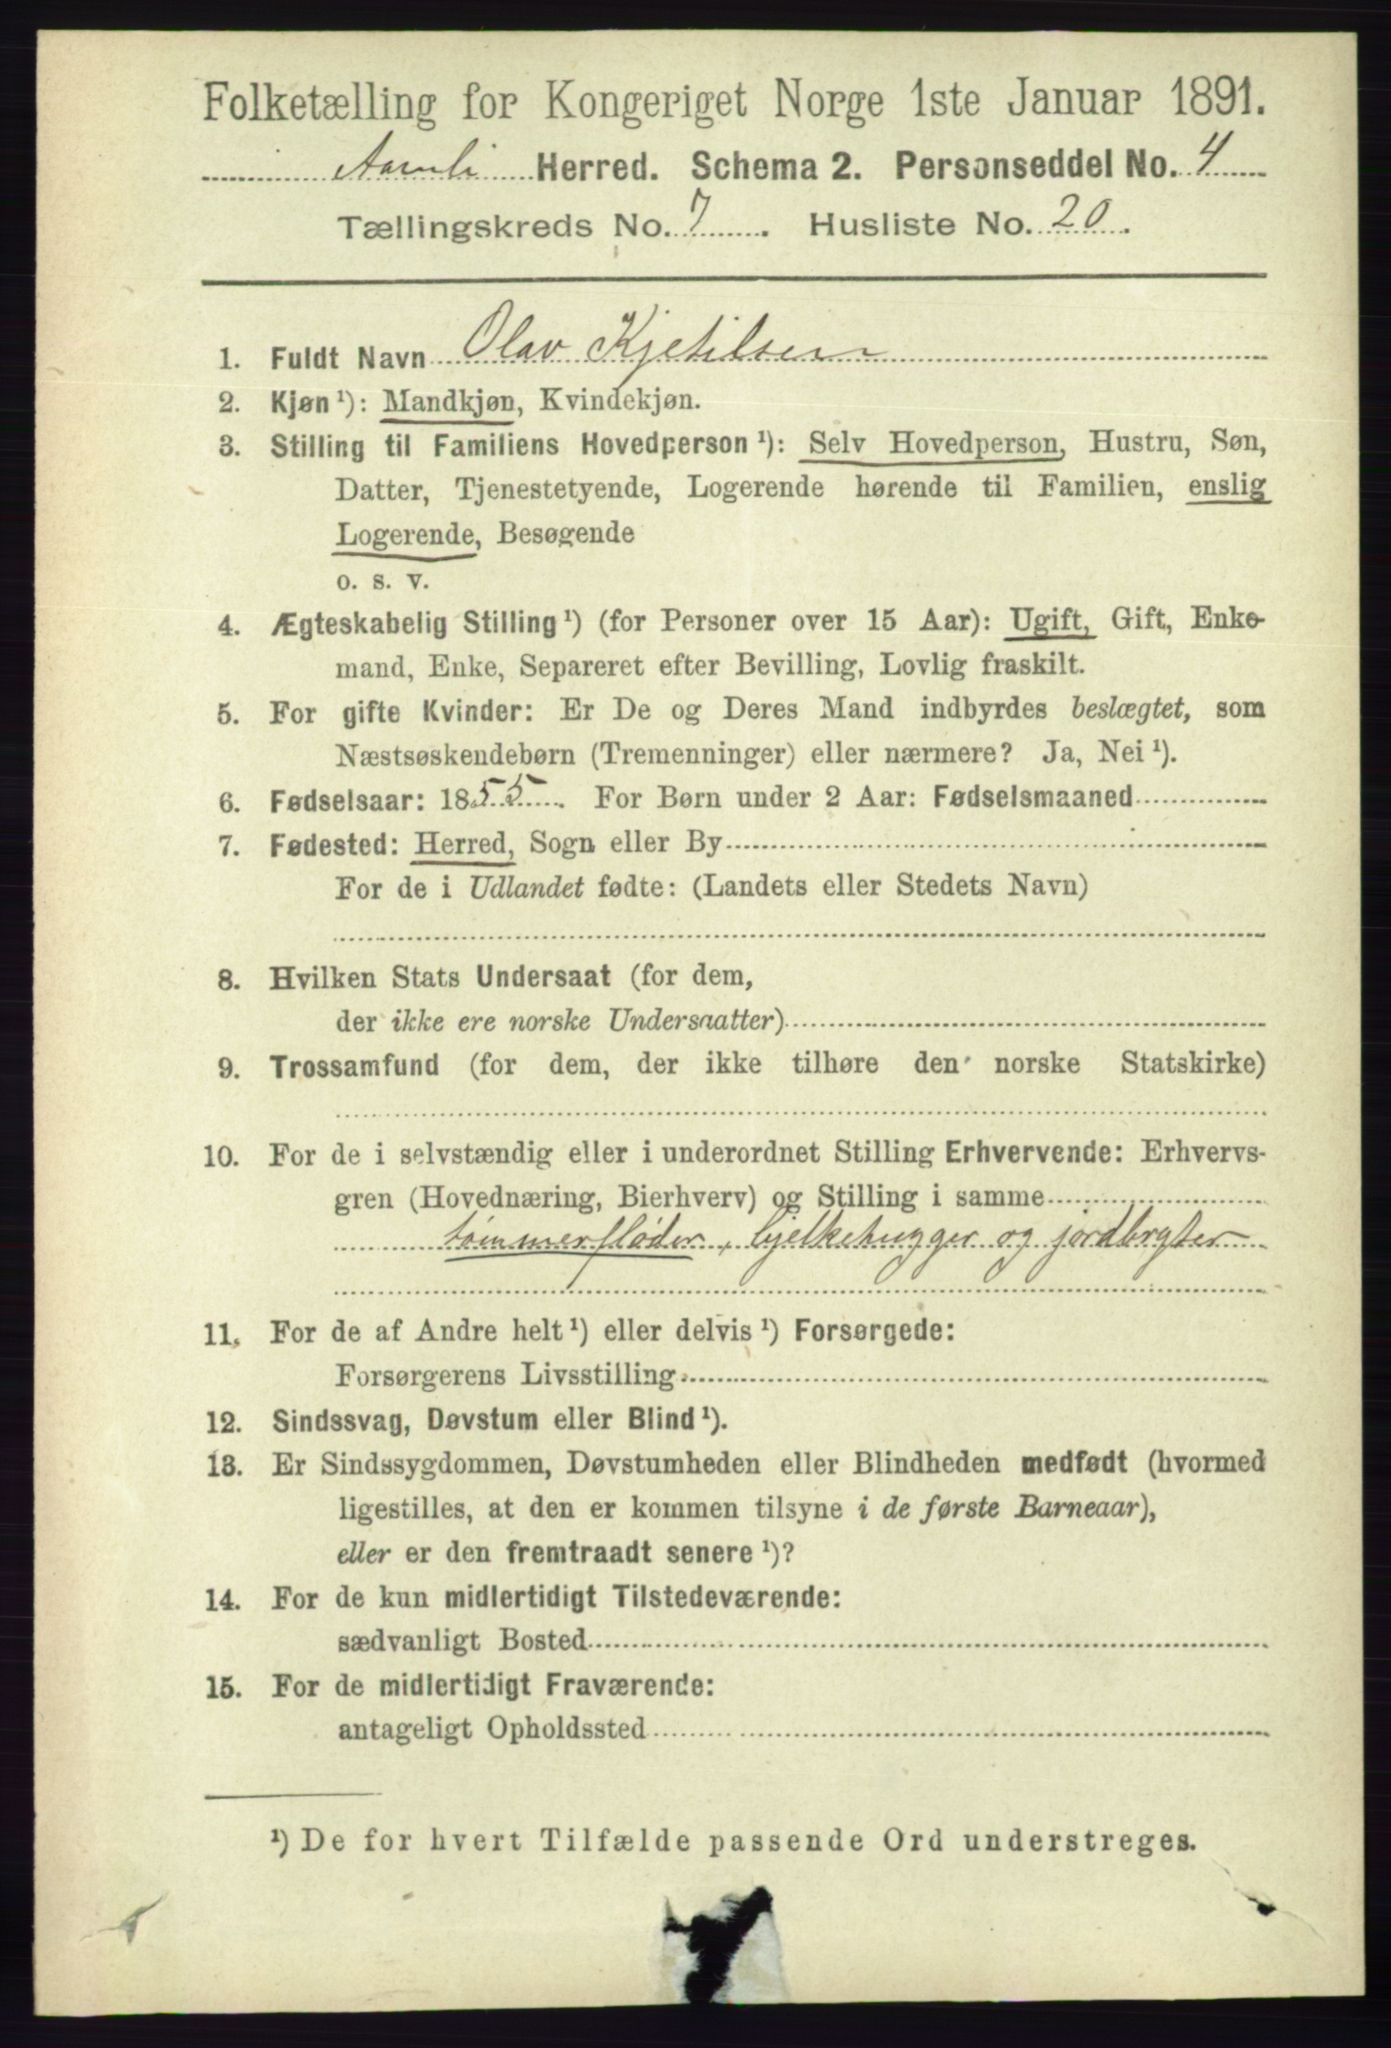 Folketælling for Kongeriget Norge 1ste Januar 1891.
Aamli Herred. Schema 2. Personseddel No. 4
Tællingskreds No. 7. Husliste No. 20.
1. Fuldt Navn Olav Kjetilsen
2. Kjøn¹): Mandkjøn, Kvindekjøn.
3. Stilling til Familiens Hovedperson¹): Selv Hovedperson, Hustru, Søn,
Datter, Tjenestetyende, Logerende hørende til Familien, enslig
Logerende, Besøgende
o. s. v.
4. Ægteskabelig Stilling¹) (for Personer over 15 Aar): Ugift, Gift, Enke-
mand, Enke, Separeret efter Bevilling, Lovlig fraskilt.
5. For gifte Kvinder: Er De og Deres Mand indbyrdes beslægtet, som
Næstsøskendebørn (Tremenninger) eller nærmere? Ja, Nei¹).
6. Fødselsaar: 1855. For Børn under 2 Aar: Fødselsmaaned
7. Fødested: Herred, Sogn eller By
For de i Udlandet fødte: (Landets eller Stedets Navn)
8. Hvilken Stats Undersaat (for dem,
der ikke ere norske Undersaatter)
9. Trossamfund (for dem, der ikke tilhøre den norske Statskirke)
10. For de i selvstændig eller i underordnet Stilling Erhvervende: Erhvervs-
gren (Hovednæring, Bierhverv) og Stilling i samme
tømmerfløder, bjelkehugger og jordbryter
11. For de af Andre helt¹) eller delvis¹) Forsørgede:
Forsørgerens Livsstilling
12. Sindssvag, Døvstum eller Blind¹).
13. Er Sindssygdommen, Døvstumheden eller Blindheden medfødt (hvormed
ligestilles, at den er kommen tilsyne i de første Barneaar),
eller er den fremtraadt senere¹)?
14. For de kun midlertidigt Tilstedeværende:
sædvanligt Bosted
15. For de midlertidigt Fraværende:
antageligt Opholdssted
¹) De for hvert Tilfælde passende Ord understreges.